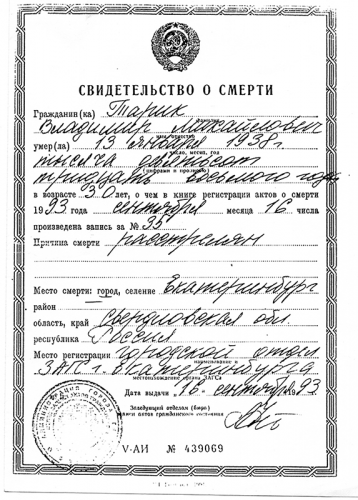 СВИДЕТЕЛЬСТВО О СМЕРТИ
Гражданин(ка) Тарик
Владимир Михайлович
умер(ла) 13 января 1938г.
число, месяц, год
тысяча девятьсот
(цифрами и прописью)
тридцать восьмого года
в возрасте 30 лет, о чем в книге регистрации актов о смерти
1993 года сентября месяца 16 числа
произведена запись за № 35
Причина смерти расстрелян
Место смерти: город, селение Екатеринбург
район
область, край Свердловская обл.
республика Россия
Место регистрации городской отдел
наименование и
ЗАГС г. Екатеринбурга
местонахождение органа ЗАГСа
Дата выдачи "16" сентября 93.
Заведующий отделом (бюро)
записи актов гражданского состояния
V-АИ № 439069